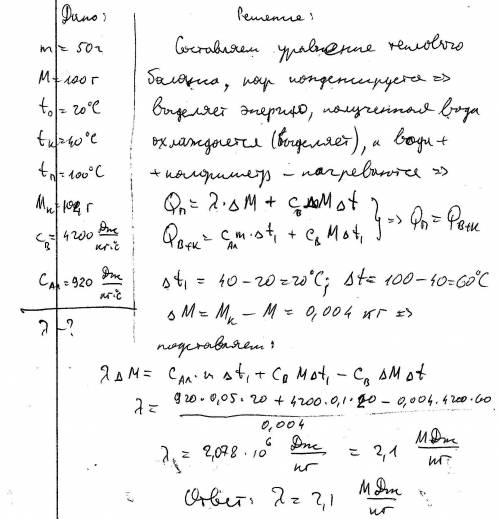 Дано:
m = 50г
M = 100 г
t₀ = 20°C
tк = 40°C
tп = 100°C
Mк = 104 г
cв = 4200 Дж/кг·°C
CАл = 920 Дж/кг·°C
λ - ?
Решение:
Составляем уравнение теплового
баланса, пар конденсируется =>
выделяет энергию, полученная вода
охлаждается (выделяет), а вода +
+ калориметр - нагреваются =>
Qп = λ·ΔM + cвΔMΔt
QB+K = cАл m·Δt₁ + cв MΔt₁ } => Qп = QB+K
Δt₁ = 40 - 20 = 20°C; Δt = 100 - 40 = 60°C
ΔM = Mк - M = 0,004 кг =>
подставляем:
λΔM = CАл·m Δt₁ + CB MΔt₁ - CB ΔM Δt
λ = 920·0,05·20 + 4200·0,1·20 - 0,004·4200·60
0,004
λ = 2,078·10⁶ Дж/кг = 2,1 МДж/кг
Ответ: λ = 2,1 МДж/кг